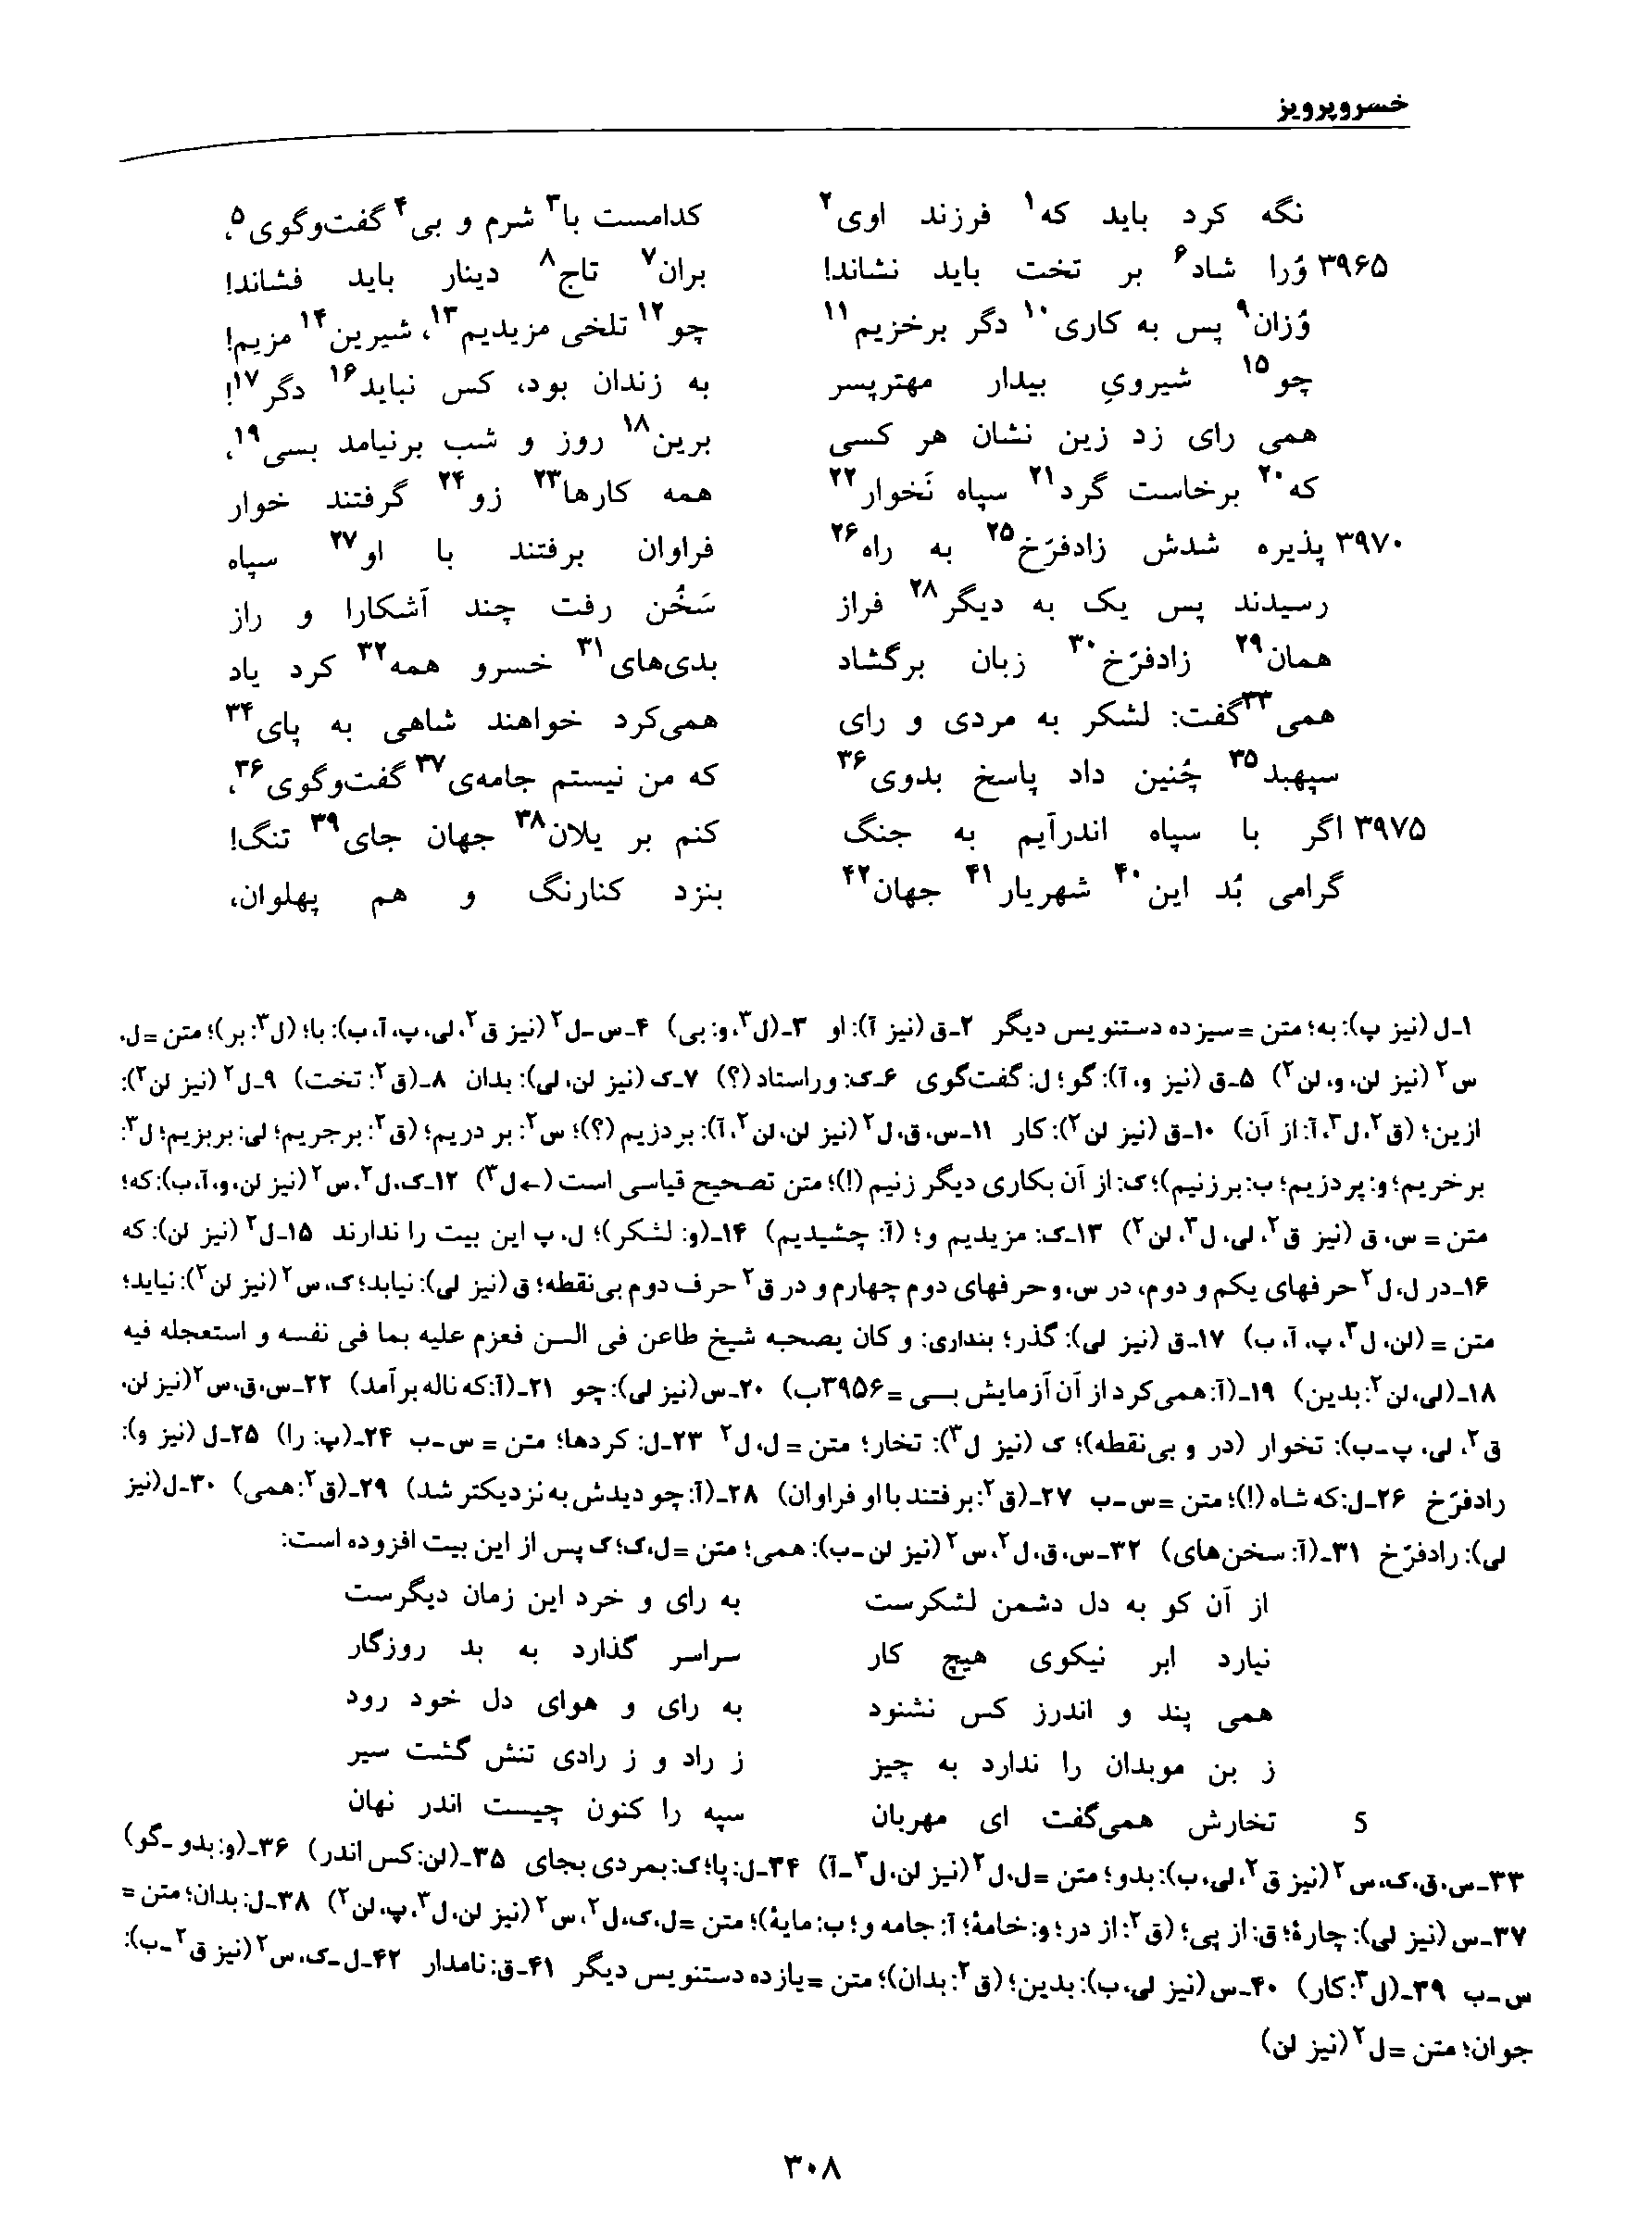 خسروپرویز
نگه کرد باید که۱ فرزند اوی۲ کدامست با۳ شرم و بی۴ گفت‌وگوی۵،
۳۹۶۵ وُرا شاد۶ بر تخت باید نشاند! بران۷ تاج۸ دینار باید فشاند!
وُزان۹ پس به کاری۱۰ دگر برخزیم۱۱ چو۱۲ تلخی مزیدیم۱۳، شیرین۱۴ مزیم!
چو۱۵ شیرویِ بیدار مهترپسر به زندان بود، کس نباید۱۶ دگر۱۷!
همی رای زد زین نشان هر کسی برین۱۸ روز و شب برنیامد بسی۱۹،
که۲۰ برخاست گرد۲۱ سپاه نَخوار۲۲ همه کارها۲۳ زو۲۴ گرفتند خوار
۳۹۷۰ پذیره شدش زادفرّخ۲۵ به راه۲۶ فراوان برفتند با او۲۷ سپاه
رسیدند پس یک به دیگر۲۸ فراز سَخُن رفت چند آشکارا و راز
همان۲۹ زادفرّخ۳۰ زبان برگشاد بدی‌های۳۱ خسرو همه۳۲ کرد یاد
همی۳۳گفت: لشکر به مردی و رای همی‌کرد خواهند شاهی به پای۳۴
سپهبد۳۵ چُنین داد پاسخ بدوی۳۶ که من نیستم جامه‌ی۳۷ گفت‌وگوی۳۶،
۳۹۷۵ اگر با سپاه اندرآیم به جنگ کنم بر یلان۳۸ جهان جای۳۹ تنگ!
گرامی بُد این۴۰ شهریار۴۱ جهان۴۲ بنزد کنارنگ و هم پهلوان،
۱ـ‌ل (نیز پ): به؛ متن = سیزده دستنویس دیگر ۲ـ‌ق (نیز آ): او ۳ـ(ل۳، و: بی) ۴ـ‌س‌ـ‌ل۲ (نیز ق۲، لی، پ، آ، ب): با؛ (ل۳: بر)؛ متن = ل،
س۲ (نیز لن، و، لن۲) ۵ـ‌ق (نیز و، آ): گو؛ ل: گفت‌گوی ۶ـ‌ک: وراستاد (؟) ۷ـ‌ک (نیز لن، لی): بدان ۸ـ(ق۲: تخت) ۹ـ‌ل۲ (نیز لن۲):
ازین؛ (ق۲، ل۳، آ: از آن) ۱۰ـ‌ق (نیز لن۲): کار ۱۱ـ‌س، ق، ل۲ (نیز لن، لن۲، آ): بردزیم (؟)؛ س۲: بر دریم؛ (ق۲: برجریم؛ لی: بربزیم؛ ل۳:
برخریم؛ و: پردزیم؛ ب: برزنیم)؛ ک: از آن بکاری دیگر زنیم (!)؛ متن تصحیح قیاسی است (← ل۳) ۱۲ـ‌ک، ل۲، س۲ (نیز لن، و، آ، ب): که؛
متن = س، ق (نیز ق۲، لی، ل۳، لن۲) ۱۳ـ‌ک: مزیدیم و؛ (آ: چشیدیم) ۱۴ـ(و: لشکر)؛ ل، پ این بیت را ندارند ۱۵ـ‌ل۲ (نیز لن): که
۱۶ـ‌در ل، ل۲ حرفهای یکم و دوم، در س، و حرفهای دوم چهارم و در ق۲ حرف دوم بی‌نقطه؛ ق (نیز لی): نیابد؛ ک، س۲ (نیز لن۲): نیاید؛
متن = (لن، ل۳، پ، آ، ب) ۱۷ـ‌ق (نیز لی): گذر؛ بنداری: و کان یصحبه شیخ طاعن فی السن فعزم علیه بما فی نفسه و استعجله فیه
۱۸ـ(لی، لن۲: بدین) ۱۹ـ(آ: همی‌کرد از آن آزمایش بسی = ۳۹۵۶ب) ۲۰ـ‌س (نیز لی): چو ۲۱ـ(آ: که ناله برآمد) ۲۲ـ‌س، ق، س۲ (نیز لن،
ق۲، لی، پ‌ـ‌ب): تخوار (در و بی‌نقطه)؛ ک (نیز ل۳): تخار؛ متن = ل، ل۲ ۲۳ـ‌ل: کردها؛ متن = س‌ـ‌ب ۲۴ـ(پ: را) ۲۵ـ‌ل (نیز و):
رادفرّخ ۲۶ـ‌ل: که شاه (!)؛ متن = س‌ـ‌ب ۲۷ـ(ق۲: برفتند با او فراوان) ۲۸ـ(آ: چو دیدش به نزدیکتر شد) ۲۹ـ(ق۲: همی) ۳۰ـ‌ل (نیز
لی): رادفرّخ ۳۱ـ(آ: سخن‌های) ۳۲ـ‌س، ق، ل۲، س۲ (نیز لن‌ـ‌ب): همی؛ متن = ل، ک؛ ک پس از این بیت افزوده است:
از آن کو به دل دشمن لشکرست به رای و خرد این زمان دیگرست
نیارد ابر نیکوی هیچ کار سراسر گذارد به بد روزگار
همی پند و اندرز کس نشنود به رای و هوای دل خود رود
ز بن موبدان را ندارد به چیز ز راد و ز رادی تنش گشت سیر
5 تخارش همی‌گفت ای مهربان سپه را کنون چیست اندر نهان
۳۳ـ‌س، ق، ک، س۲ (نیز ق۲، لی، ب): بدو؛ متن = ل، ل۲ (نیز لن، ل۳‌ـ‌آ) ۳۴ـ‌ل: پا؛ ک: بمردی بجای ۳۵ـ(لن: کس اندر) ۳۶ـ(و: بدو ـ گو)
۳۷ـ‌س (نیز لی): چارهٔ؛ ق: از پی؛ (ق۲: از در؛ و: خامهٔ؛ آ: جامه و؛ ب: مایهٔ)؛ متن = ل، ک، ل۲، س۲ (نیز لن، ل۳، پ، لن۲) ۳۸ـ‌ل: بدان؛ متن =
س‌ـ‌ب ۳۹ـ(ل۳: کار) ۴۰ـ‌س (نیز لی، ب): بدین؛ (ق۲: بدان)؛ متن = یازده دستنویس دیگر ۴۱ـ‌ق: نامدار ۴۲ـ‌ل‌ـ‌ک، س۲ (نیز ق۲‌ـ‌ب):
جوان؛ متن = ل۲ (نیز لن)
۳۰۸